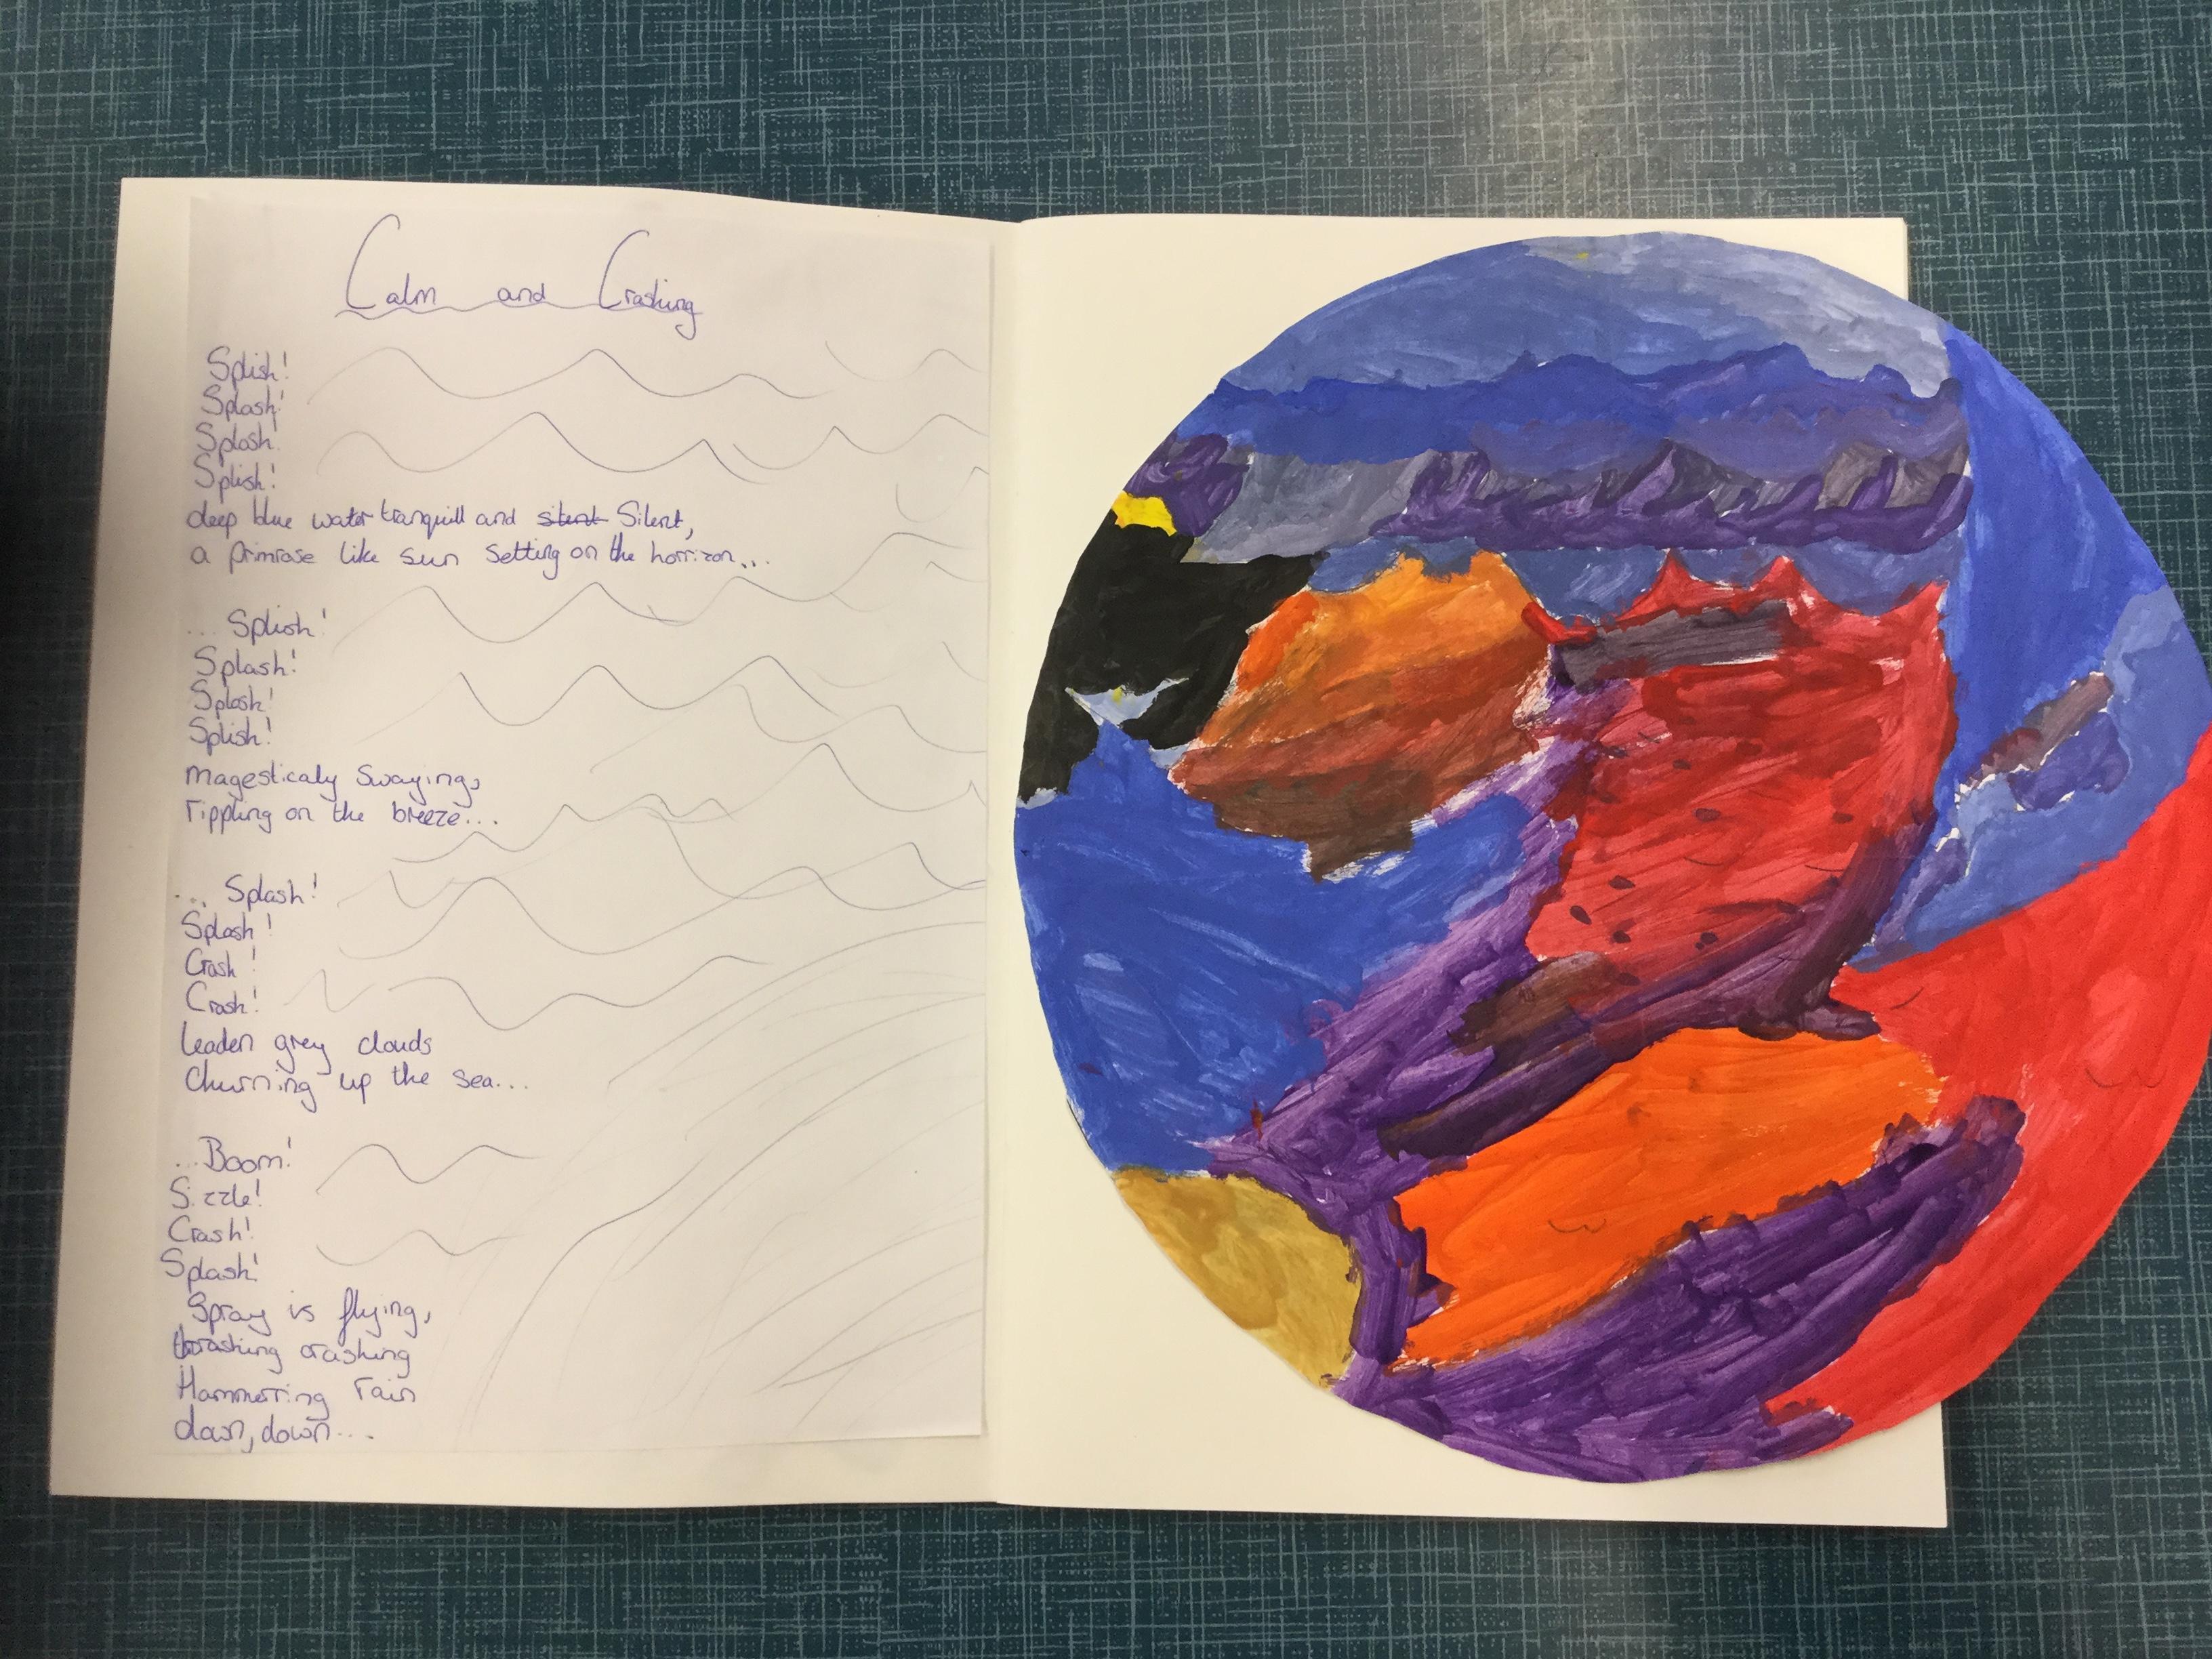 Calm and Crashing
Splish!
Splash!
Splash!
Splish!
deep blue water tranquill and silent Silent,
a primrose like sun setting on the horrizon...
... Splish!
Splash!
Splash!
Splish!
magesticaly swaying,
rippling on the breeze...
... Splash!
Splash!
Crash!
Crash!
Leaden grey clouds
Churning up the sea...
...Boom!
Sizzle!
Crash!
Splash!
Spray is flying,
thrashing crashing
Hammerring rain
down, down...